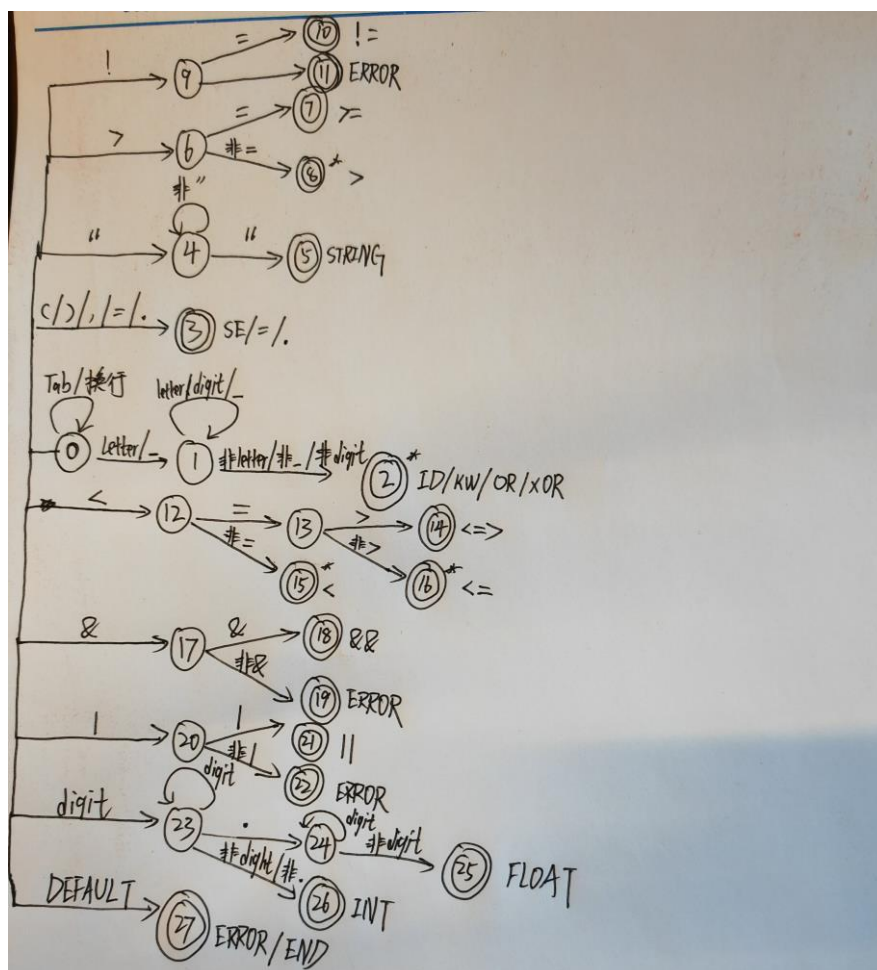 ! 9 = 10 !=
11 ERROR
> 6 = 7 >=
非= 8 * >
非"
" 4 " 5 STRING
(/)/,/=/. 3 SE/=/.
Tab/换行 letter/digit/_
0 letter/_ 1 非letter/非_/非digit 2 * ID/KW/OR/XOR
< 12 = 13 > 14 <=>
非= 15 * < 非> 16 * <=
& 17 & 18 &&
非& 19 ERROR
| 20 | 21 ||
非| 22 ERROR
digit
digit 23 . 24 digit 非digit 25 FLOAT
非dight/非. 26 INT
DEFAULT 27 ERROR/END